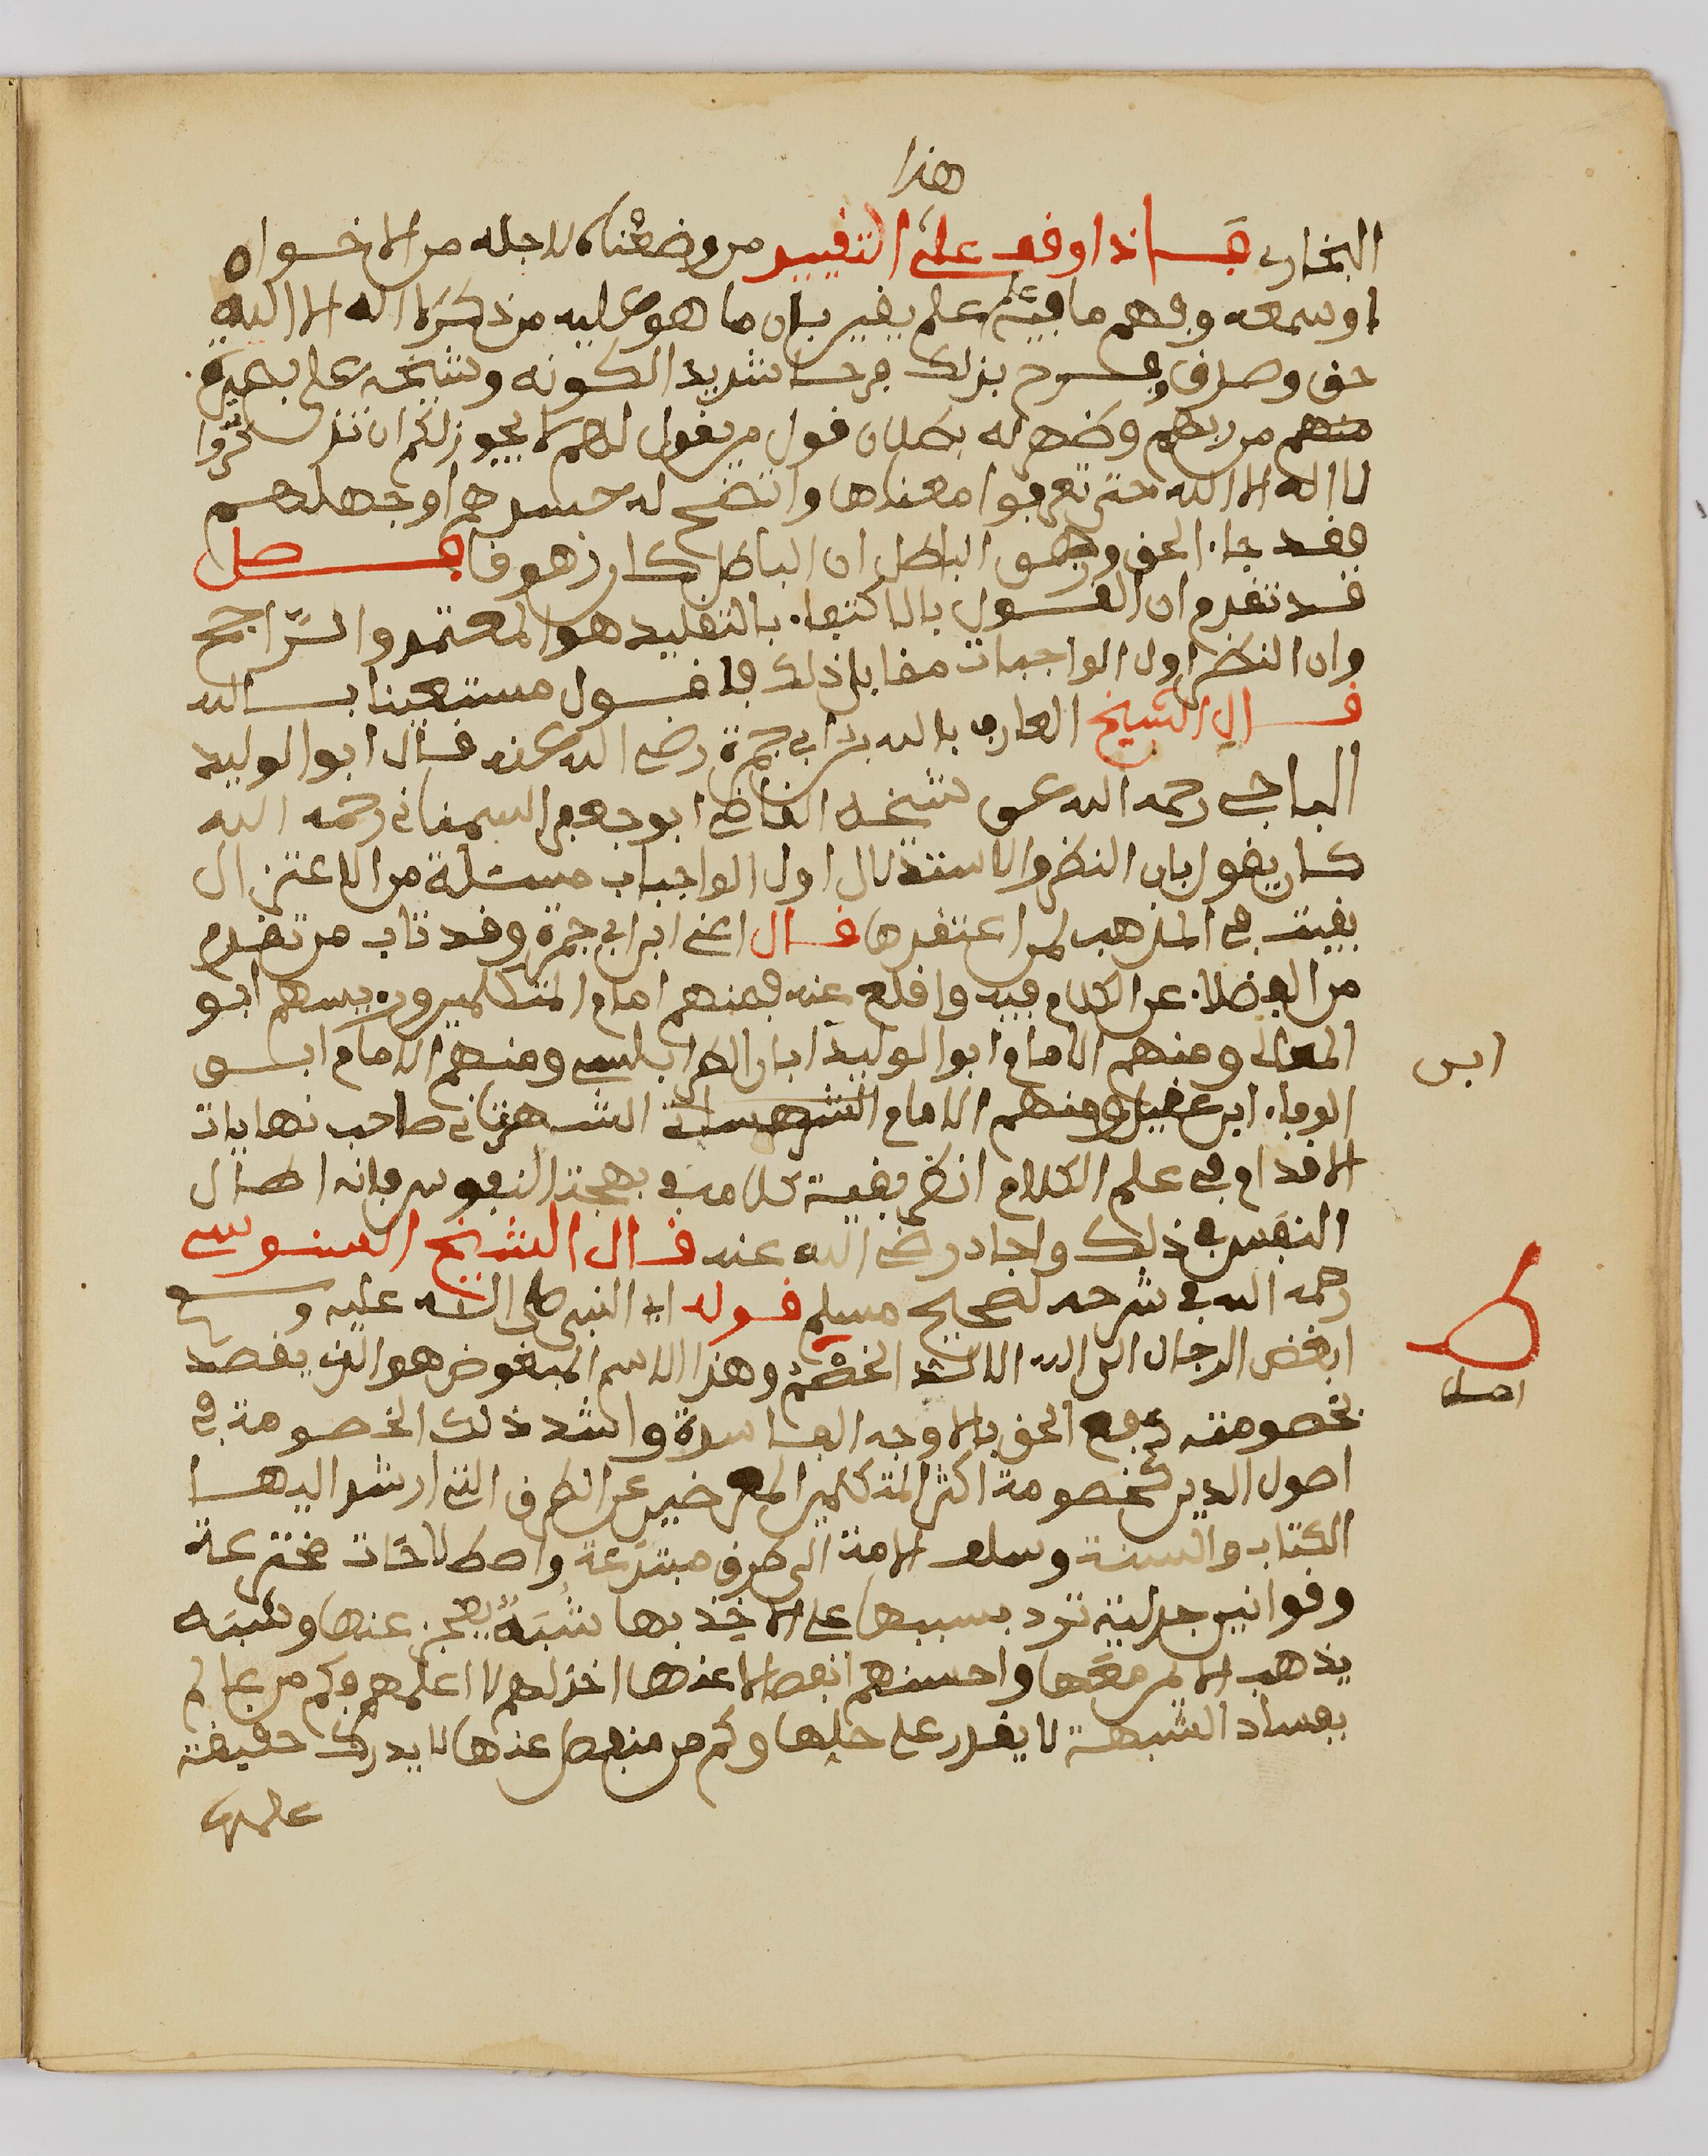 هذا
البخاري فاذا وقف على التقييد من وضعناه لاجله من الاخوان
او سمعه وفهم ما فيه علم يقين بان ما هو عليه من ذكر لا اله الا الله
حق وصدق وفرح بذلك فرحا شديدا لكونه وشيخه على بصيرة
منهم من ربهم وظهر له بطلان قول من يقول لهم لا يجوز لكم ان تذكروا
لا اله الا الله حتى تعرفوا معناها واتضح له حسدهم او جهلهم
فقد جاء الحق وزهق الباطل ان الباطل كان زهوقا فصل
قد تقدم ان القول بالاكتفاء بالتقليد هو المعتمد والراجح
وان النظر اول الواجبات مقابل ذلك فاقول مستعينا بالله
قال الشيخ العارف بالله بن ابي جمرة رضي الله عنه قال ابو الوليد
الباجي رحمه الله عن شيخه القاضي ابو جعفر السمناني رحمه الله
كان يقول بان النظر والاستدلال اول الواجبات مسئلة من الاعتزال
بقيت في المذهب لمن اعتقدها قال اعني ابن ابي جمرة وقد تاب من تقدم
من الفضلاء عن الكلام فيه واقلع عنه فمنهم امام المتكلمين وريسهم ابو
المعالي ومنهم الامام ابو الوليد ابان الطرابلسي ومنهم الامام ابو
ابن
الوفاء ابن عقيل ومنهم الامام الشهرستاني صاحب نهايات
الاقدام في علم الكلام انظر بقية كلامه في بهجة النفوس فانه اطال
النفس في ذلك واجاد رضي الله عنه قال الشيخ السنوسي
رحمه الله في شرحه لصحيح مسلم قوله اي النبي صلى الله عليه وسلم
ابغض الرجال الى الله الالد الخصم وهذا الاسم المبغوض هو الذي يقصد
اصل
بخصومته دفع الحق بالاوجه الفاسدة واشد ذلك الخصومة في
اصول الدين كخصومة اكثر المتكلمين المعرضين عن الطرق التي ارشد اليها
الكتاب والسنة وسلف الامة الى طرق مبتدعة واصطلاحات مخترعة
وقوانين جدلية ترد بسببها على الاخذ بها شبه يعجز عنها وشبه
يذهب الايمن معها واحسنهم انفصالا عنها اجدلهم لا اعلمهم وكم من عالم
بفساد الشبهة لا يقدر على حلها وكم من منفصل عنها لا يدرك حقيقة
علمها